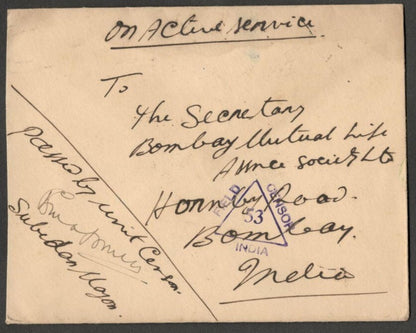 On Active Service
To
The Secretary
Bombay Mutual Life
Assce Society Ltd
Hornby Road.
Bombay.
India
FIELD CENSOR
53
INDIA
Passed by unit Censor.
Subedar Major.